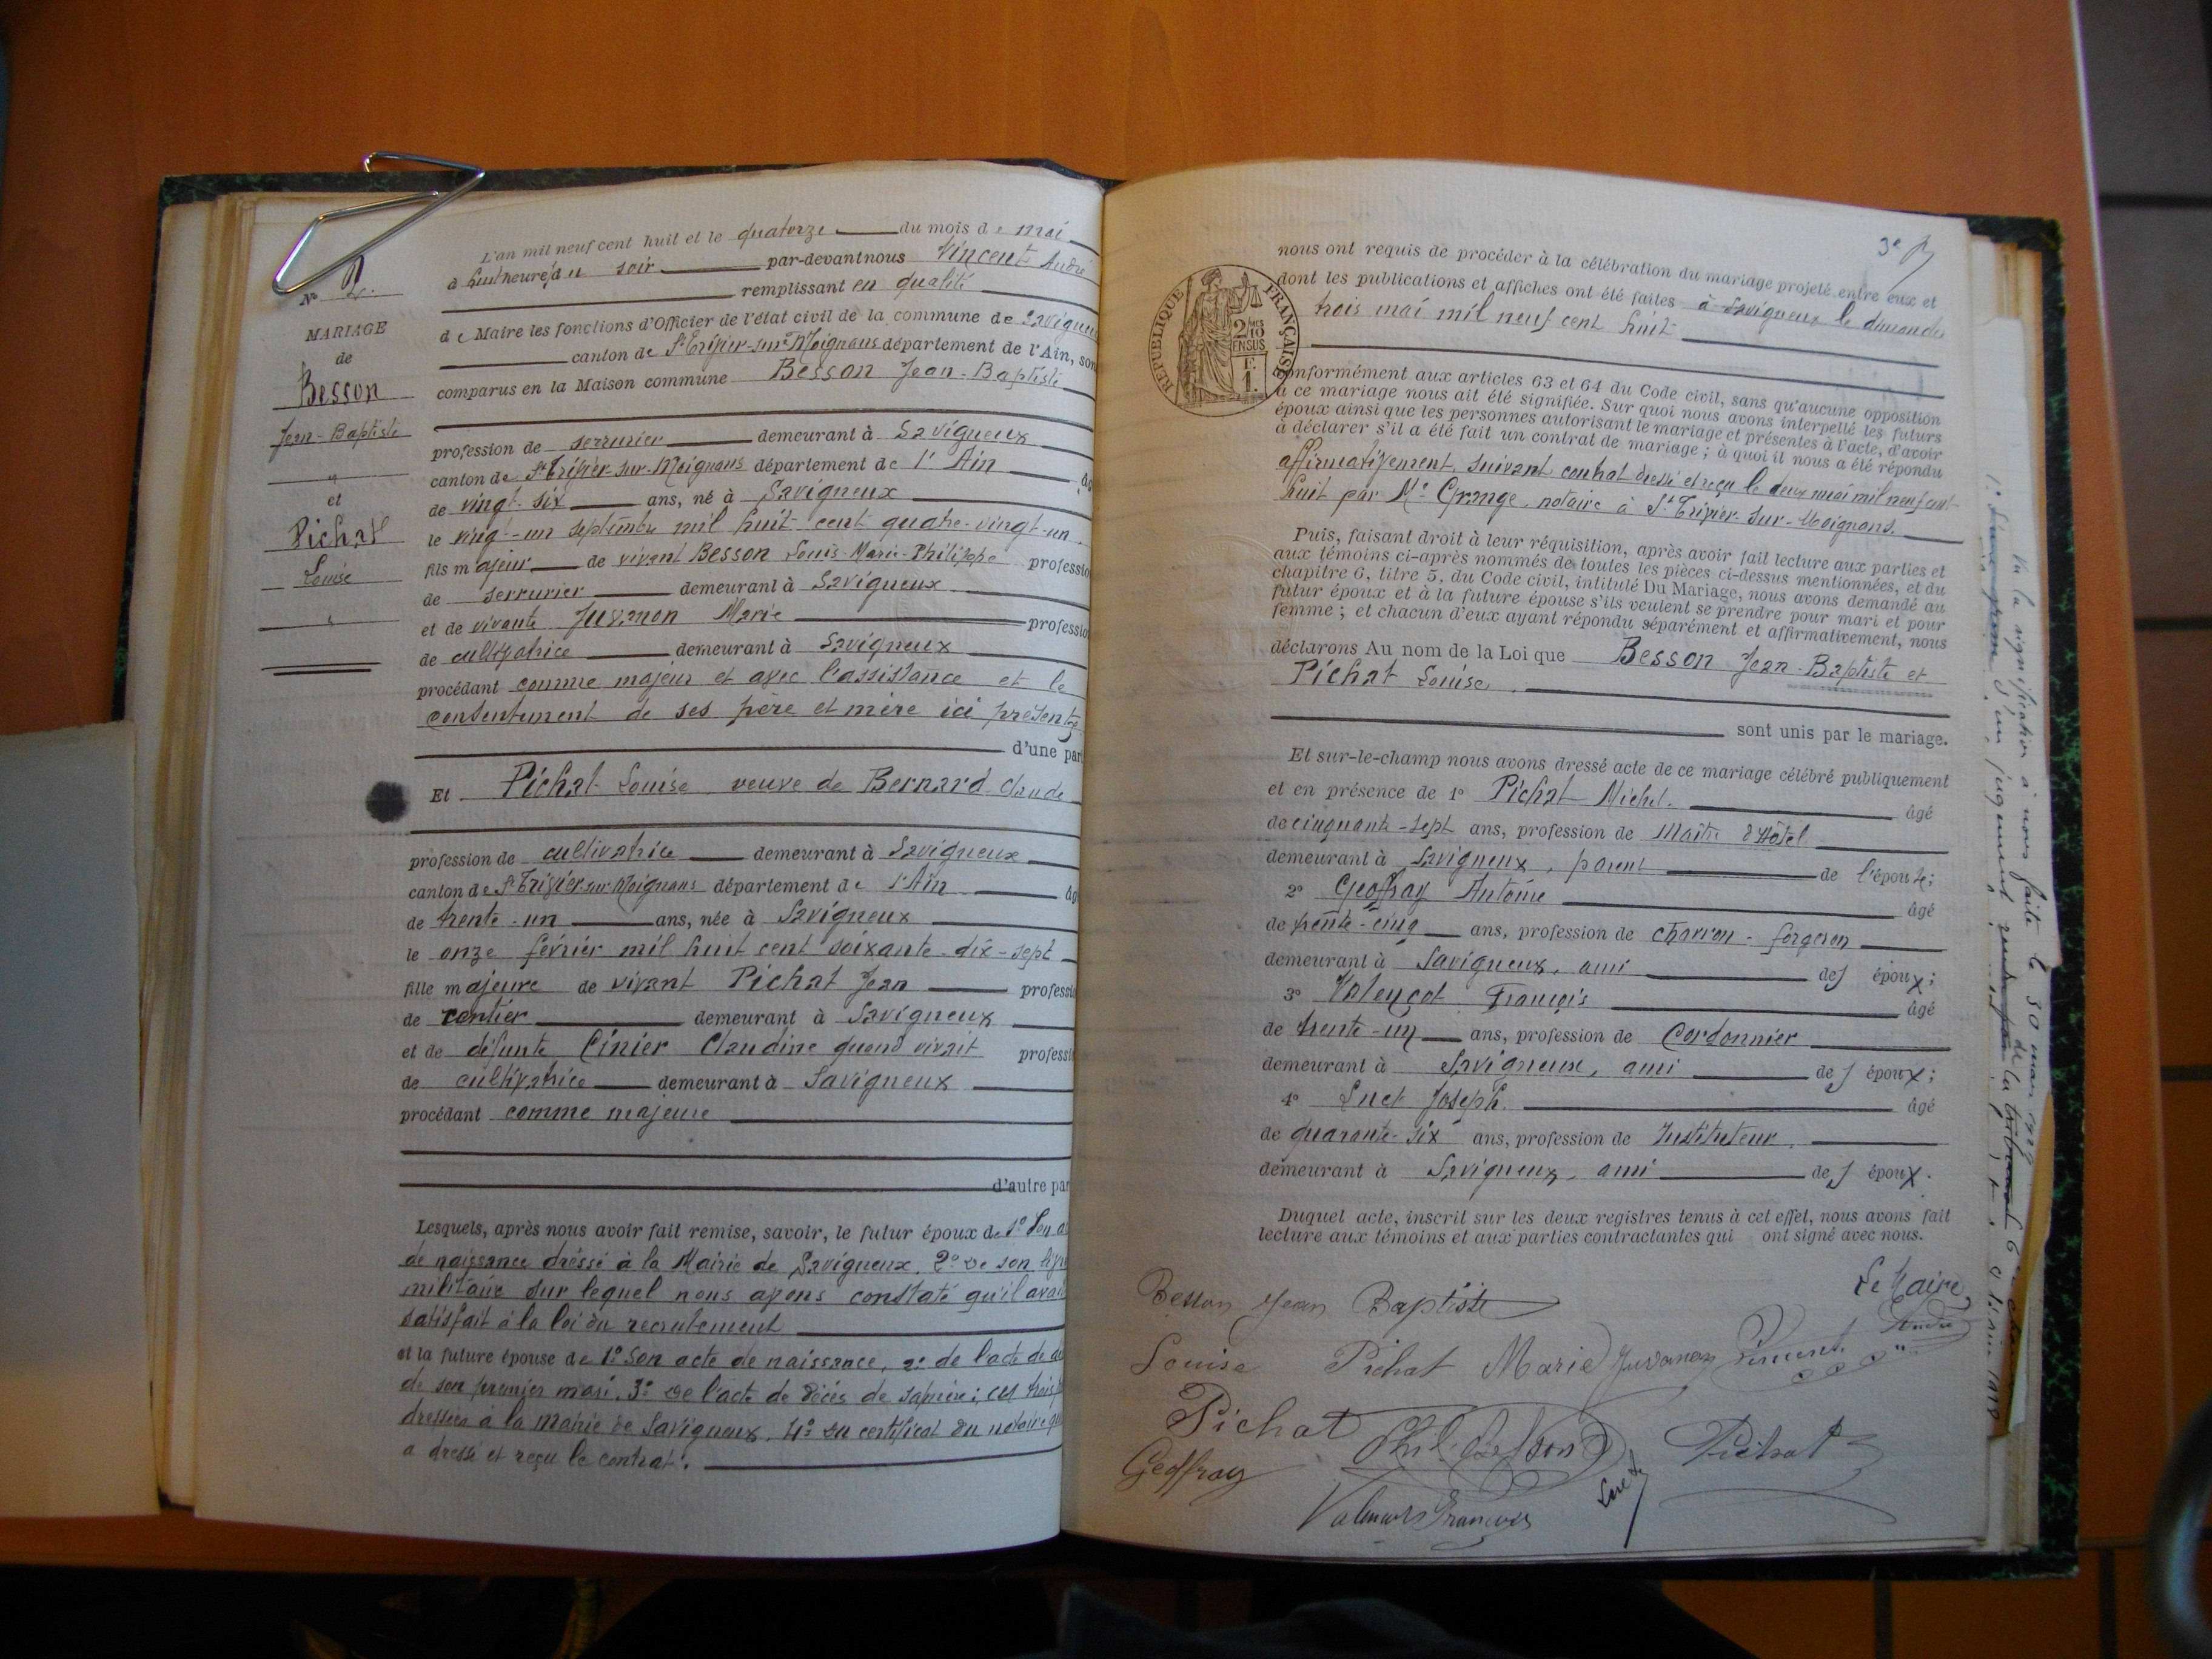 L'an mil neuf cent huit et le quatorze du mois de mai
à huit heures du soir par-devant nous Vincent André
remplissant en qualité
de Maire les fonctions d'Officier de l'état civil de la commune de Savigneux
canton de St Trivier-sur-Moignans département de l'Ain, son
comparus en la Maison commune Besson Jean-Baptiste
profession de serrurier demeurant à Savigneux
canton de St Trivier-sur-Moignans département de l'Ain
de vingt-six ans, né à Savigneux
le vingt-un septembre mil huit cent quatre-vingt-un
fils majeur de vivant Besson Louis-Marie-Philippe professio
de serrurier demeurant à Savigneux
et de vivante Juvanon Marie professio
de cultivatrice demeurant à Savigneux
procédant comme majeur et avec l'assistance et le
consentement de ses père et mère ici présents
d'une par
Et Pichat Louise veuve de Bernard Claude
profession de cultivatrice demeurant à Savigneux
canton de St Trivier-sur-Moignans département de l'Ain âg
de trente-un ans, née à Savigneux
le onze février mil huit cent soixante-dix-sept
fille majeure de vivant Pichat Jean professi
de rentier demeurant à Savigneux
et de défunte Cinier Claudine quand vivait professi
de cultivatrice demeurant à Savigneux
procédant comme majeure
d'autre par
Lesquels, après nous avoir fait remise, savoir, le futur époux de 1º Son a
de naissance dressé à la Mairie de Savigneux. 2º de son livre
militaire sur lequel nous avons constaté qu'il avait
satisfait à la loi du recrutement
et la future épouse de 1º son acte de naissance, 2º de l'acte de dé
de son premier mari, 3º de l'acte de décès de sa mère; ces trois
dressées à la mairie de Savigneux, 4º du certificat du notaire qui
a dressé et reçu le contrat.
Nº 2.
MARIAGE
de
Besson
Jean-Baptiste
et
Pichat
Louise
3e
nous ont requis de procéder à la célébration du mariage projeté entre eux et
dont les publications et affiches ont été faites à Savigneux le dimanche
trois mai mil neuf cent huit
RÉPUBLIQUE FRANÇAISE
2/10 EN SUS
F.
1.
Conformément aux articles 63 et 64 du Code civil, sans qu'aucune opposition
à ce mariage nous ait été signifiée. Sur quoi nous avons interpellé les futurs
époux ainsi que les personnes autorisant le mariage et présentes à l'acte, d'avoir
à déclarer s'il a été fait un contrat de mariage; à quoi il nous a été répondu
affirmativement, suivant contrat dressé et reçu le deux mai mil neuf cent
huit par Me Grange, notaire à St Trivier-sur-Moignans.
Puis, faisant droit à leur réquisition, après avoir fait lecture aux parties et
aux témoins ci-après nommés de toutes les pièces ci-dessus mentionnées, et du
chapitre 6, titre 5, du Code civil, intitulé Du Mariage, nous avons demandé au
futur époux et à la future épouse s'ils veulent se prendre pour mari et pour
femme; et chacun d'eux ayant répondu séparément et affirmativement, nous
déclarons Au nom de la Loi que Besson Jean-Baptiste et
Pichat Louise,
sont unis par le mariage.
Et sur-le-champ nous avons dressé acte de ce mariage célébré publiquement
et en présence de 1º Pichat Michel. âgé
de cinquante-sept ans, profession de Maître d'Hôtel
demeurant à Savigneux, parent de l'épouse;
2º Geoffray Antoine âgé
de trente-cinq ans, profession de charron-forgeron
demeurant à Savigneux, ami des époux;
3º Valençot François âgé
de trente-un ans, profession de Cordonnier
demeurant à Savigneux, ami des époux;
4º Luet Joseph. âgé
de quarante-six ans, profession de Instituteur,
demeurant à Savigneux, ami des époux.
Duquel acte, inscrit sur les deux registres tenus à cet effet, nous avons fait
lecture aux témoins et aux parties contractantes qui ont signé avec nous.
Besson Jean Baptiste
Le Maire,
Louise Pichat Marie Juvanon Vincent André
Pichat Phil. Besson Pichat
Geoffray Luet
Valençot François
Vu la signification à nous faite le 30 mars
d'un jugement de la